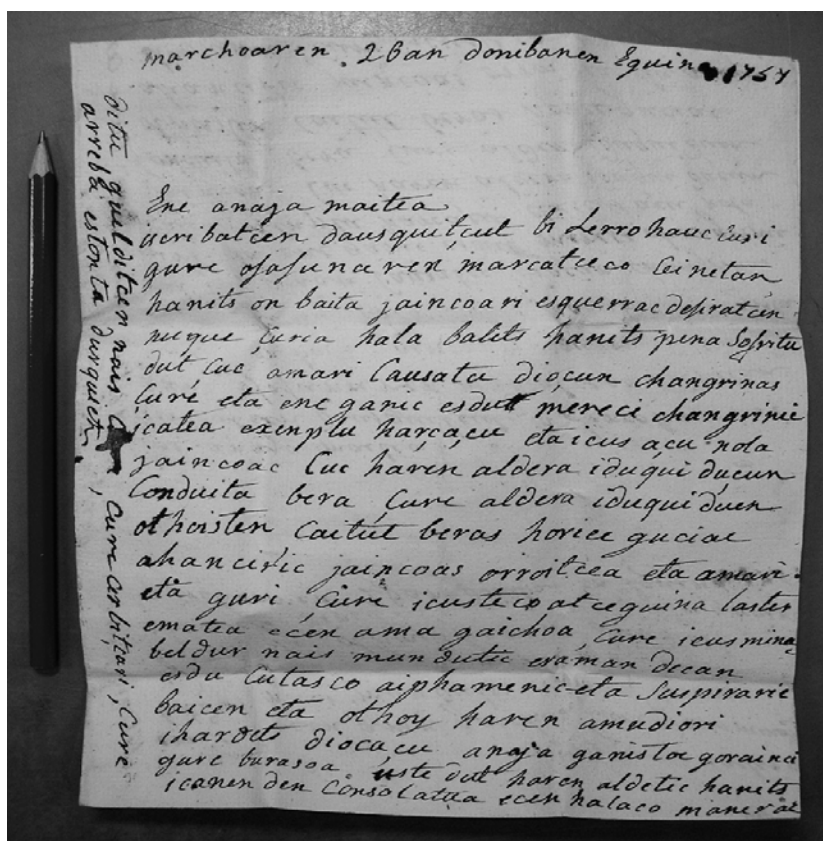 marchoaren . 26an donibanen Eguina 1757
Ene anaja maitea
iscribatcen dausquitçut bi Lerro hauc Çuri
gure osasunaren marcatceco Ceinetan
hanits on baita jaincoari esquerrac desiratcen
nuque çuria hala balits hanits pena Sofritu
dut Çuc amari Causatu dioçun changrinas
Çure eta ene ganic esdut mereci changrinic
içatea exenplu harçaçu eta icus açu nola
jaincoac Çuc haren aldera iduqui duçun
Conduita bera Çure aldera iduqui duen
othoisten Çaitut beras horiec guciac
ahanciric jaincoas orroitcea eta amari
eta guri Çure icusteco atceguina laster
ematea ecen ama gaichoa Çure icus minas
beldur nais mundutic eraman deçan
esdu Çutasco aiphamenic eta Suspiraric
baicen eta othoy haren amudiori
ihardets dioçaçu anaja ganistoc gorainci
gure burasoa uste dut haren aldetic hanits
içanen den Consolatua ecen halaco maneras
ditu quilditcen nais Çure arbitçari, Çure
arreba estonta durquiet.